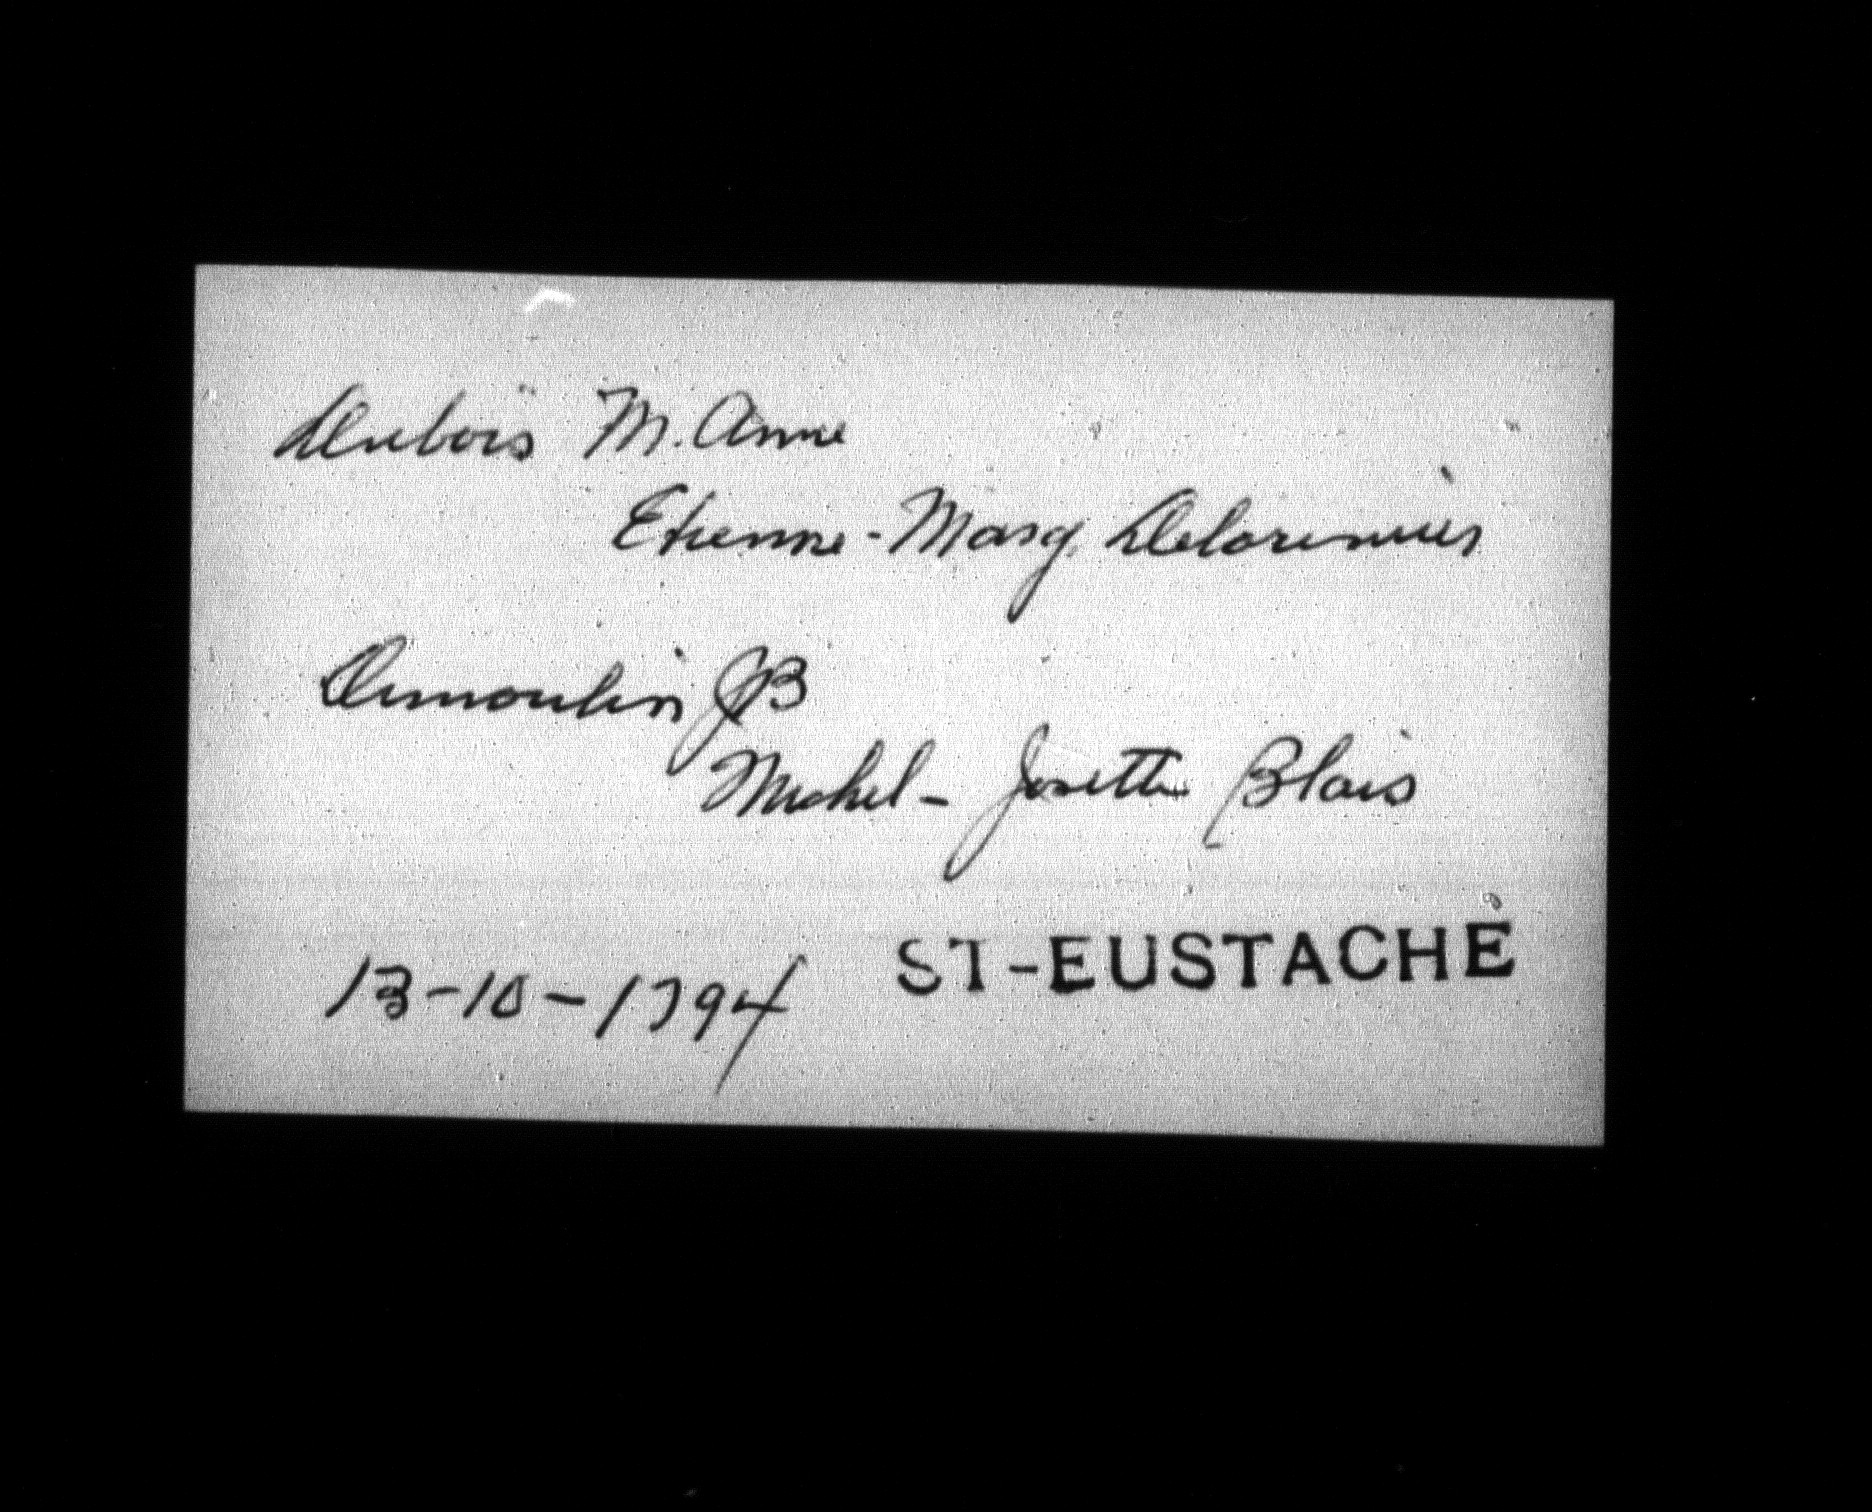 Dubois M. Anne
Etienne - Marg. Delorimier
Dumoulin JB
Michel - Josette Blais
13-10-1794 ST-EUSTACHE